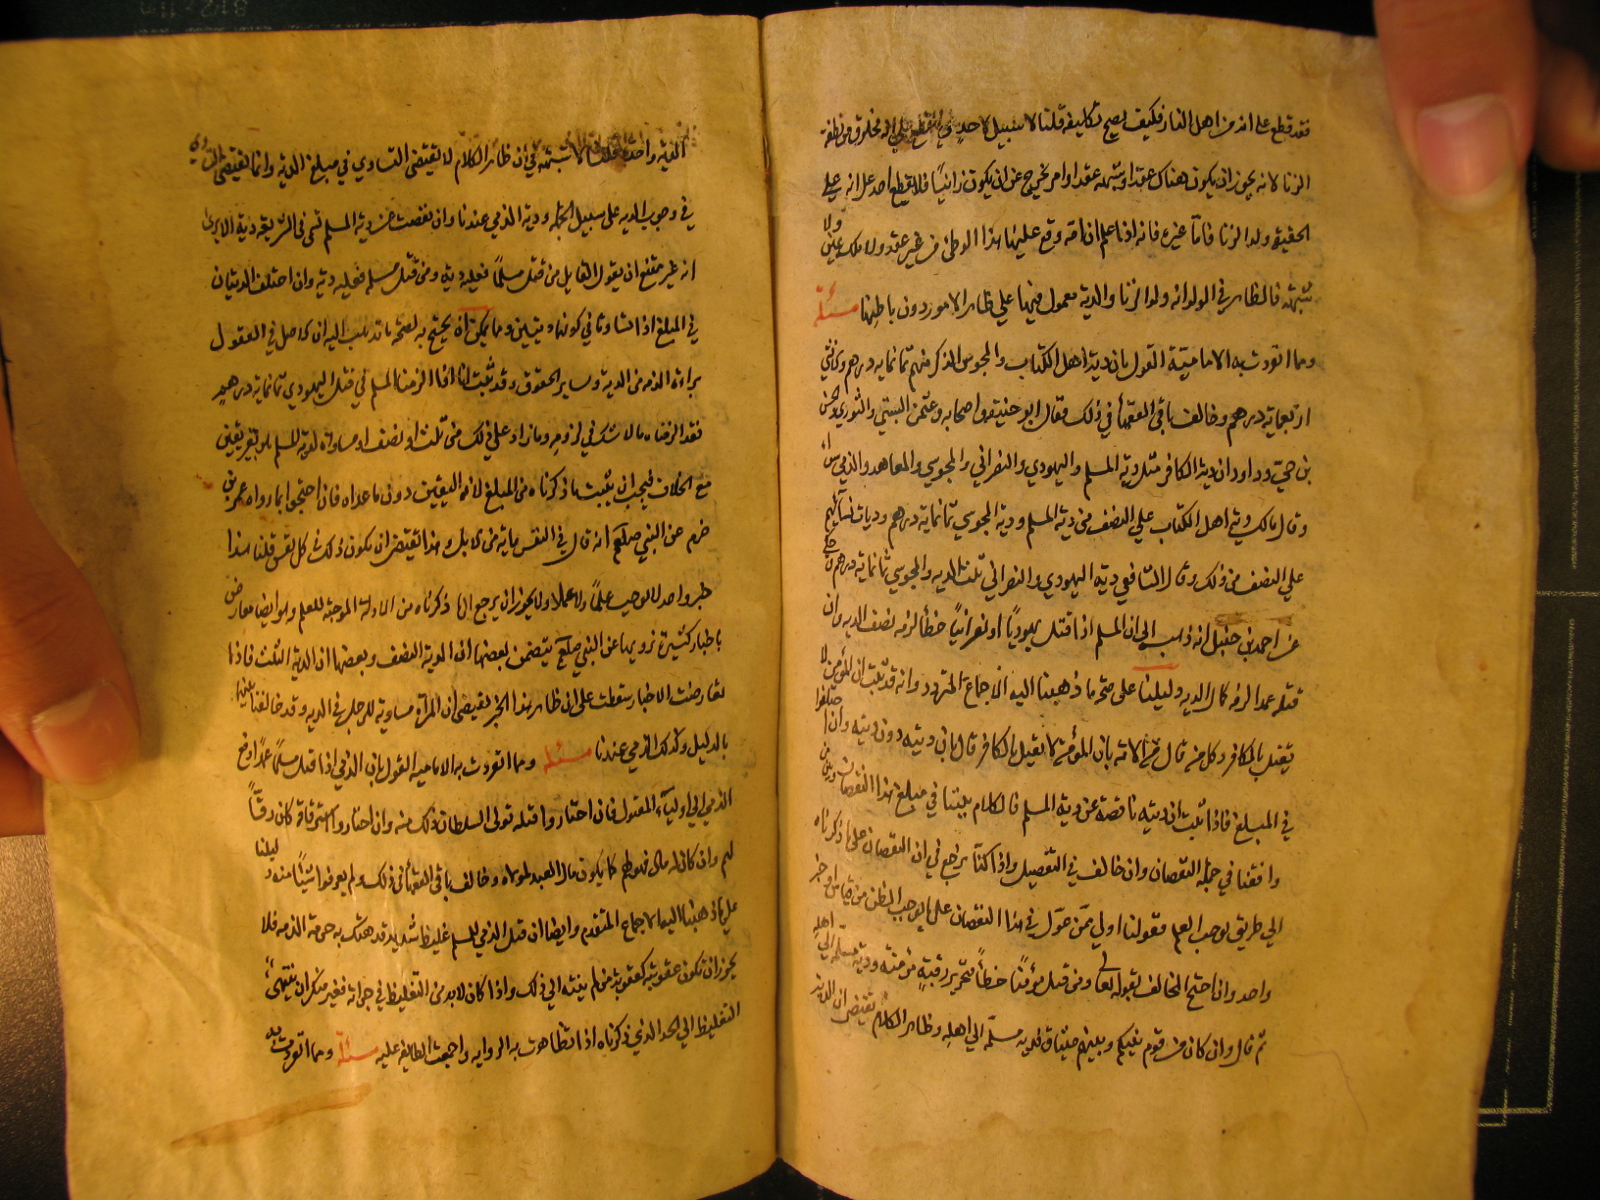 فقد قطع على انه من اهل النار فكيف يصح تكليفه قلنا لا سبيل لاحد في القطع على انه مخلوق من نطفة
الزنا لانه يجوز ان يكون هناك عقد او شبهة عقد او امر يخرج عن ان يكون زانيًا فلا يقطع احد على انه على
الحقيقة ولد الزنا فاما غيره فانه اذا علم ان امه وقع عليها هذا الوطئ من غير عقد ولا ملك يمين ولا
شبهة فالظاهر في الولد انه ولد الزنا والدية معمول فيها على ظاهر الامور دون باطنها مسئلة
ومما انفردت به الامامية القول بان دية اهل الكتاب والمجوس الذكر منهم ثمانمايه درهم والانثى
اربعمايه درهم وخالف باقي الفقهاء في ذلك فقال ابو حنيفه واصحابه وعثمن البستي والثوري والحسن
بن حي وداود ان دية الكافر مثل دية المسلم واليهودي والنصراني والمجوسي والمعاهد والذمي سواء
وقال مالك دية اهل الكتاب على النصف من دية المسلم ودية المجوسي ثمانماية درهم وديات نسائهم
على النصف من ذلك وقال الشافعي دية اليهودي والنصراني ثلث الديه والمجوسي ثمانماية درهم وحكي
عن احمد بن حنبل انه ذهب الى ان المسلم اذا قتل يهوديًا او نصرانيًا خطأ لزمه نصف الديه وان
قتله عمدا لزمه كمال الديه دليلنا على صحة ما ذهبنا اليه الاجماع المتردد وانه قد ثبت ان المؤمن لا
يقتل بالكافر وكل من قال من الامة بان المؤمن لا يقتل بالكافر قال بان ديته دون ديته وان اختلفوا
في المبلغ فاذا ثبت ان ديته ناقصة عن دية المسلم فالكلام بيننا في مبلغ هذا النقصان وبين من
وافقنا في جملة النقصان وان خالف في التفصيل واذا كنا نرجع في ان النقصان على ما ذكرناه
الى طريق يوجب العلم فقولنا اولى ممن عول في هذا النقصان على ما يوجب الظن من قياس او خبر
واحد وان احتج المخالف بقوله تعالى ومن قتل مؤمنًا خطأ فتحرير رقبة مؤمنة ودية مسلمة الى اهله
ثم قال وان كان من قوم بينكم وبينهم ميثاق فدية مسلمة الى اهله وظاهر الكلام يقتضي ان الدية
الدية واحدة قلنا لا شبهة في ان ظاهر الكلام لا يقتضي التساوي في مبلغ الدية وانما يقتضي التساوي
في وجوب الديه على سبيل الجملة ودية الذمي عندنا وان نقصت عن دية المسلم تسمى في الشريعة دية الا يرى
انه غير ممتنع ان يقول القايل من قتل مسلمًا فعليه دية ومن قتل مسلمه فعليه دية وان اختلف الديتان
في المبلغ اذا تساوتا في كونهما ديتين ومما يمكن ان يحتج به لصحة ما نذهب اليه ان الاصل في العقول
براءة الذمه من الدية وساير الحقوق وقد ثبت انا اذا الزمنا المسلم في قتل اليهودي ثمانماية درهم
فقد الزمناه ما لا شك في لزومه وما زاد على ذلك من ثلث او نصف او مساواة لدية المسلم هو بغير يقين
مع الخلاف فيجب ان يثبت ما ذكرناه من المبلغ لانه اليقين دون ما عداه فان احتجوا بما رواه عمرو بن
حزم عن النبي صلعم انه قال في النفس ماية من الابل وهذا يقتضي ان يكون ذلك في كل نفس قلنا هذا
خبر واحد لا يوجب علمًا ولا عملا ولا يجوز ان يرجع الى ما ذكرناه من الادلة الموجبة للعلم وهو ايضا معارض
باخبار كثيرة نرويها عن النبي صلعم يتضمن بعضها ان الدية النصف وبعضها ان الدية الثلث فاذا
تعارضت الاخبار سقطت على ان ظاهر هذا الخبر يقتضي ان المراة مساوية للرجل في الديه وقد خالفنا بينهما
بالدليل وكذلك الذمي عندنا مسئله ومما انفردت به الامامية القول بان الذمي اذا قتل مسلمًا عمدًا دفع
الذمي الى اولياء المقتول فان اختاروا قتله تولى السلطان ذلك منه وان اختاروا استرقاقه كان رقًا
لهم وان كان له مال فهو لهم كما يكون مال العبد لمولاه وخالف باقي الفقهاء في ذلك ولم يعرفوا شيئًا منه دليلنا
على ما ذهبنا اليه الاجماع المتقدم وايضا ان قتل الذمي للمسلم غليظ شديد قد هتك به حرمة الذمه فلا
يجوز ان تكون عقوبته كعقوبة من لم ينته الى ذلك واذا كان لا بد من التغليظ في جزائه فغير منكر ان ينتهي
التغليظ الى الحد الذي ذكرناه اذا تظاهرت به الروايه واجمعت الطايفه عليه مسئلة ومما انفردت به